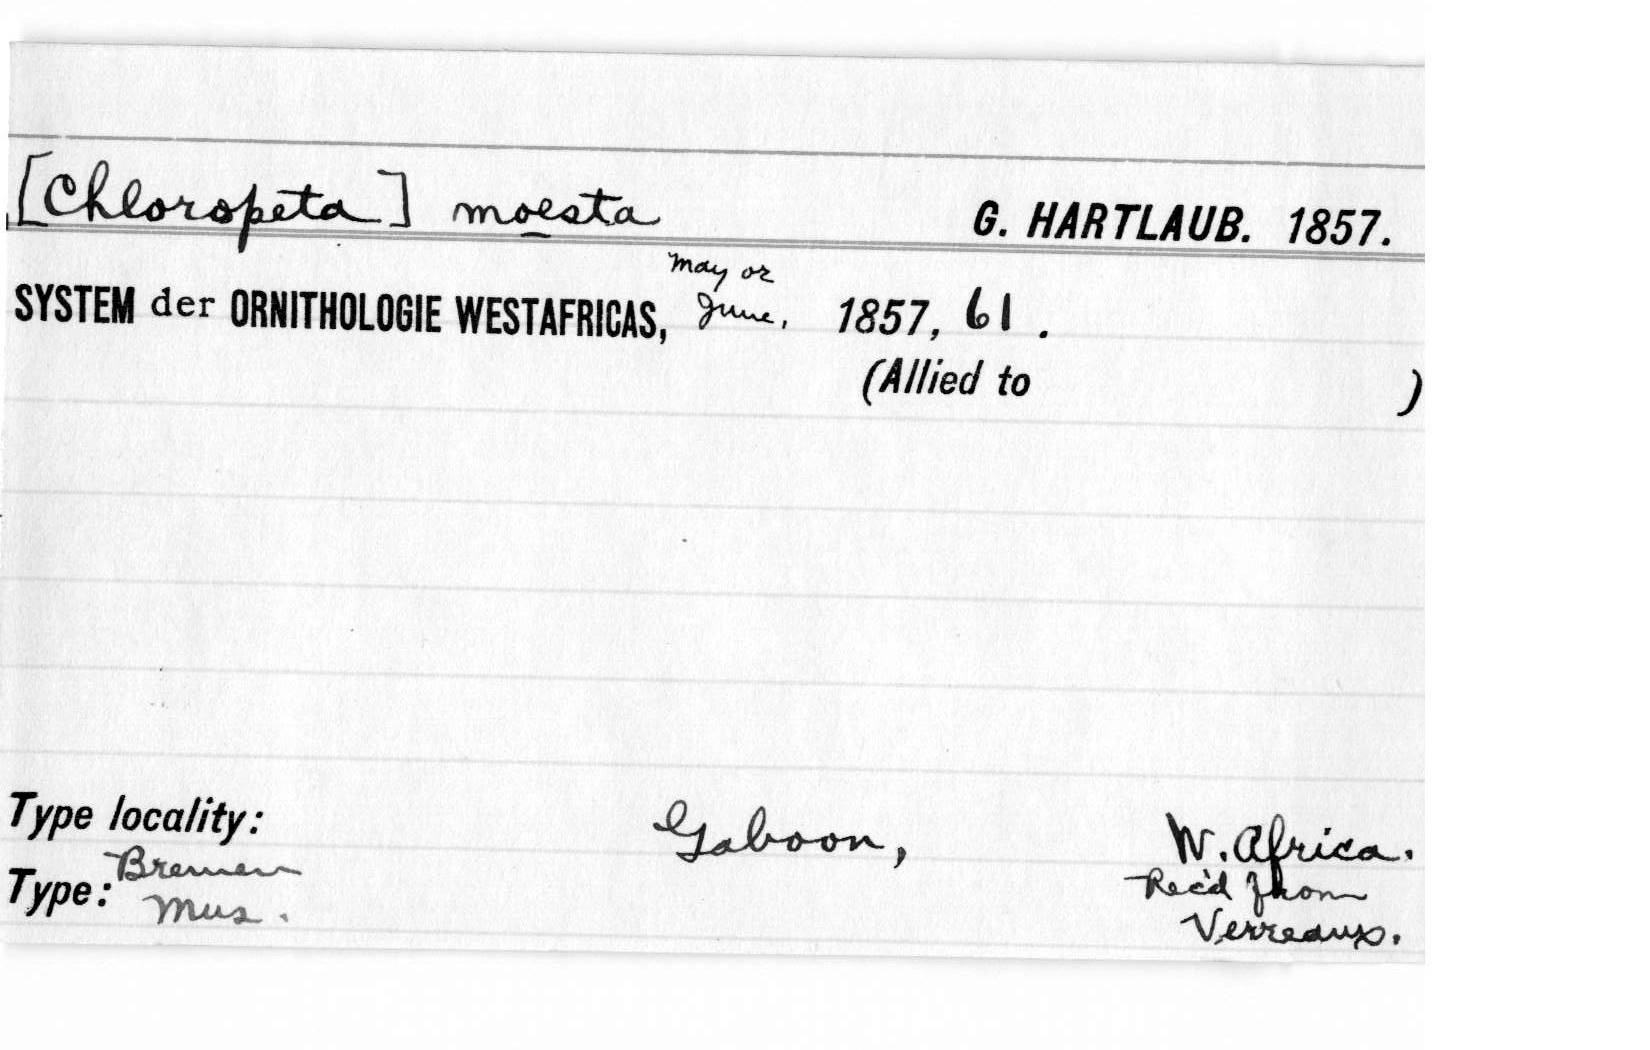 [Chloropeta] moesta G. HARTLAUB. 1857.
May or
SYSTEM der ORNITHOLOGIE WESTAFRICAS, June, 1857, 61.
(Allied to )
Type locality: Gaboon, W. Africa.
Bremen Rec'd from
Type: Mus. Verreaux.